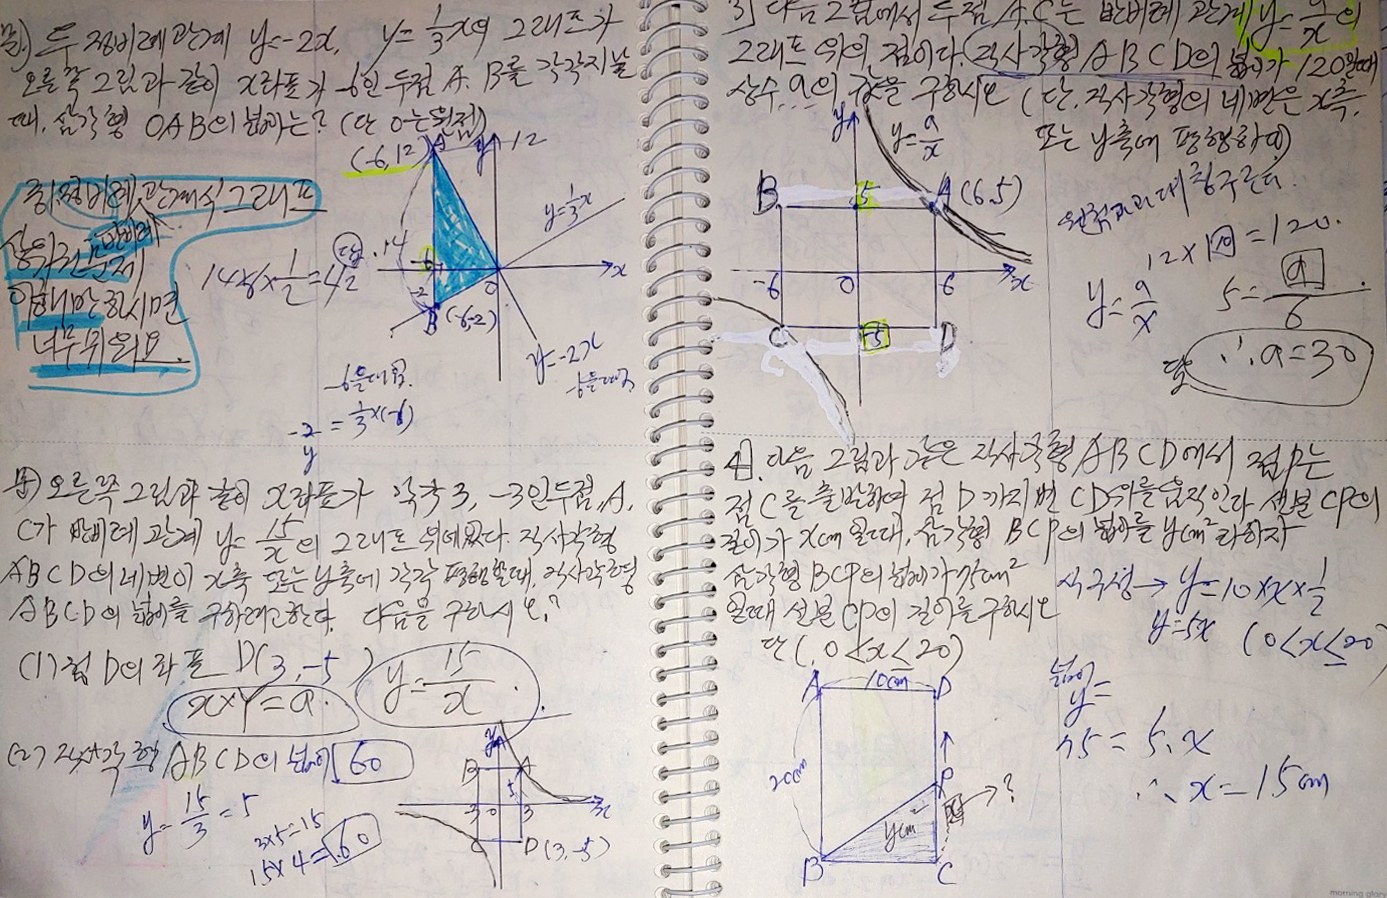 두 정비례 관계 y=-2x, y=1/3x의 그래프가
오른쪽 그림과 같이 x좌표가 -6인 두점 A, B를 각각 지날
때, 삼각형 OAB의 넓이는? (단 0는 원점)
(-6,12) A
y 12
정비례, 관계식 그래프
반비례
문제
이해만 하시면
너무 쉬워요.
y=1/3x
답. 14
14×6×1/2=42
-6
-2
0
x
B(-6,-2)
y=-2x
-6을 대입.
-6을 대입.
-2/y = 1/3×(-6)
오른쪽 그림과 같이 x좌표가 각각 3, -3인 두점 A,
C가 반비례 관계 y=15/x의 그래프 위에 있다. 직사각형
ABCD의 네변이 x축 또는 y축에 각각 평행할때, 직사각형
ABCD의 넓이를 구하려고 한다. 다음을 구하시오?
(1) 점 D의 좌표 D(3, -5)
x×y=a. y=15/x.
(2) 직사각형 ABCD의 넓이 60
y=15/3=5
3×5=15
15×4=60
y
B A
5
3 0 3 x
C D(3,-5)
3) 다음 그림에서 두점 A,C는 반비례 관계 y=a/x의
그래프 위의 점이다. 직사각형 ABCD의 넓이가 120일때
상수 a의 값을 구하시오 (단, 직사각형의 네변은 x축,
또는 y축에 평행하다)
y
y=a/x
B 5 A(6,5)
-6 0 6 x
C -5 D
원점과 대칭구한다.
12×10=120.
y=a/x 5=a/6
답 ∴a=30
4. 다음 그림과 같은 직사각형 ABCD에서 점P는
점 C를 출발하여 점 D까지 변 CD위를 움직인다. 선분 CP의
길이가 xcm일때, 삼각형 BCP의 넓이를 ycm²라하자
삼각형 BCP의 넓이가 75cm²
일때 선분 CP의 길이를 구하시오
단(, 0<x≤20)
식구성→ y=10×x×1/2
y=5x (0<x≤20)
넓이
y=
75=5.x
∴x=15cm
A 10cm D
20cm
P
?
ycm²
B C
morning glory